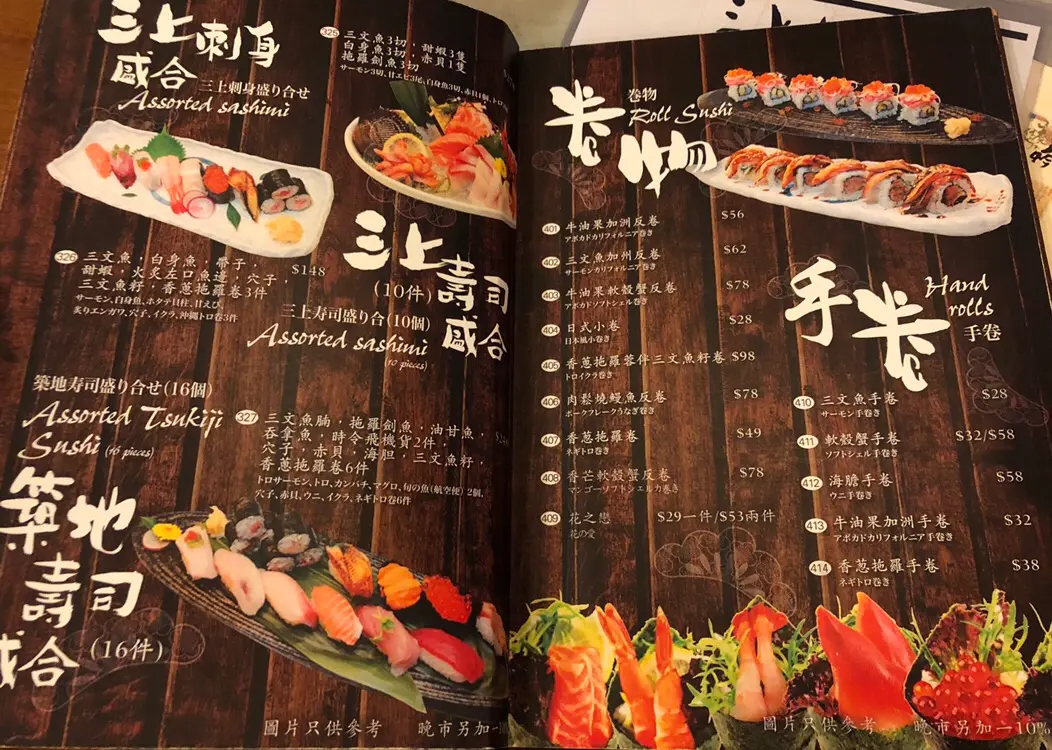 三上刺身
盛合
三上刺身盛り合せ
Assorted sashimi
325
三文魚3切，甜蝦3隻
白身魚3切，赤貝1隻
拖羅劍魚3切
サーモン3切、甘エビ3尾、白身魚3切、赤貝1個、トロ
326
三文魚，白身魚，帶子，
甜蝦，火炙左口魚邊，穴子，
三文魚籽，香蔥拖羅卷3件
$148
サーモン、白身魚、ホタテ貝柱、甘えび、
炙りエンガワ、穴子、イクラ、沖縄トロ巻3件
三上壽司
盛合
(10件)
三上寿司盛り合(10個)
Assorted sashimi
(10 pieces)
築地寿司盛り合せ(16個)
Assorted Tsukiji
Sushi (16 pieces)
築地
壽司
盛合
(16件)
327
三文魚腩，拖羅劍魚，油甘魚，
吞拿魚，時令飛機貨2件，
穴子，赤貝，海胆，三文魚籽，
香蔥拖羅卷6件
トロサーモン、トロ、カンパチ、マグロ、旬の魚(航空便) 2個、
穴子、赤貝、ウニ、イクラ、ネギトロ巻6件
圖片只供參考
晚市另加一
卷物
巻物
Roll Sushi
401 牛油果加洲反卷 $56
アボカドカリフォルニア巻き
402 三文魚加州反卷 $62
サーモンカリフォルニア巻き
403 牛油果軟殼蟹反卷 $78
アボカドソフトシェル巻き
404 日式小卷 $28
日本風小巻き
405 香蔥拖羅蓉伴三文魚籽卷 $98
トロイクラ巻き
406 肉鬆燒鰻魚反卷 $78
ポークフレークうなぎ巻き
407 香蔥拖羅卷 $49
ネギトロ巻き
408 香芒軟殼蟹反卷 $78
マンゴーソフトシェルカ巻き
409 花之戀 $29一件/$53兩件
花の愛
手卷
Hand
rolls
手巻
410 三文魚手卷 $28
サーモン手巻き
411 軟殼蟹手卷 $32/$58
ソフトシェル手巻き
412 海膽手卷 $58
ウニ手巻き
413 牛油果加洲手卷 $32
アボカドカリフォルニア手巻き
414 香蔥拖羅手卷 $38
ネギトロ巻き
圖片只供參考
晚市另加一10%